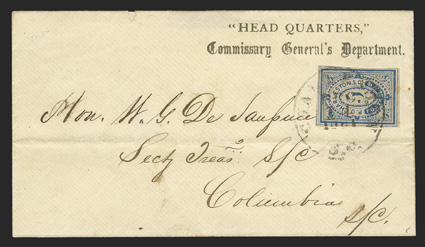 "HEAD QUARTERS,"
Commissary General's Department.
Hon. W. G. De Saussure
Secty Treas. S/C
Columbia
S/C.